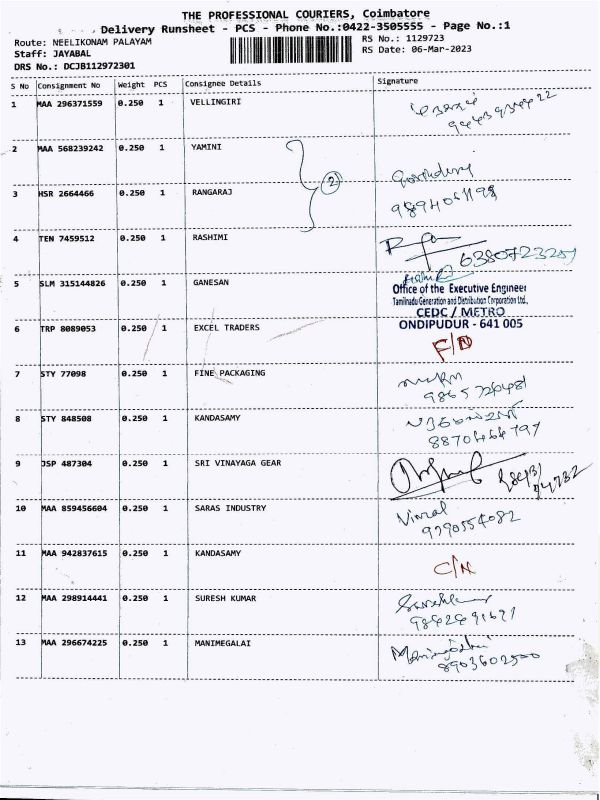 THE PROFESSIONAL COURIERS, Coimbatore
Delivery Runsheet - PCS - Phone No.:0422-3505555 - Page No.:1
Route: NEELIKONAM PALAYAM
RS No.: 1129723
Staff: JAYABAL
RS Date: 06-Mar-2023
DRS No.: DCJB112972301
S No Consignment No Weight PCS Consignee Details Signature
1 MAA 296371559 0.250 1 VELLINGIRI
2 MAA 568239242 0.250 1 YAMINI
2
3 HSR 2664466 0.250 1 RANGARAJ
9894061198
4 TEN 7459512 0.250 1 RASHIMI
6380723251
5 SLM 315144826 0.250 1 GANESAN
Office of the Executive Engineer
Tamilnadu Generation and Distribution Corporation Ltd.,
CEDC / METRO
ONDIPUDUR - 641 005
6 TRP 8089053 0.250 1 EXCEL TRADERS
F/D
7 STY 77098 0.250 1 FINE PACKAGING
8 STY 848508 0.250 1 KANDASAMY
8870464797
9 JSP 487304 0.250 1 SRI VINAYAGA GEAR
10 MAA 859456604 0.250 1 SARAS INDUSTRY
Vimal
9790554082
11 MAA 942837615 0.250 1 KANDASAMY
C/N
12 MAA 298914441 0.250 1 SURESH KUMAR
Sureshkumar
13 MAA 296674225 0.250 1 MANIMEGALAI
Manimegalai
8903602500